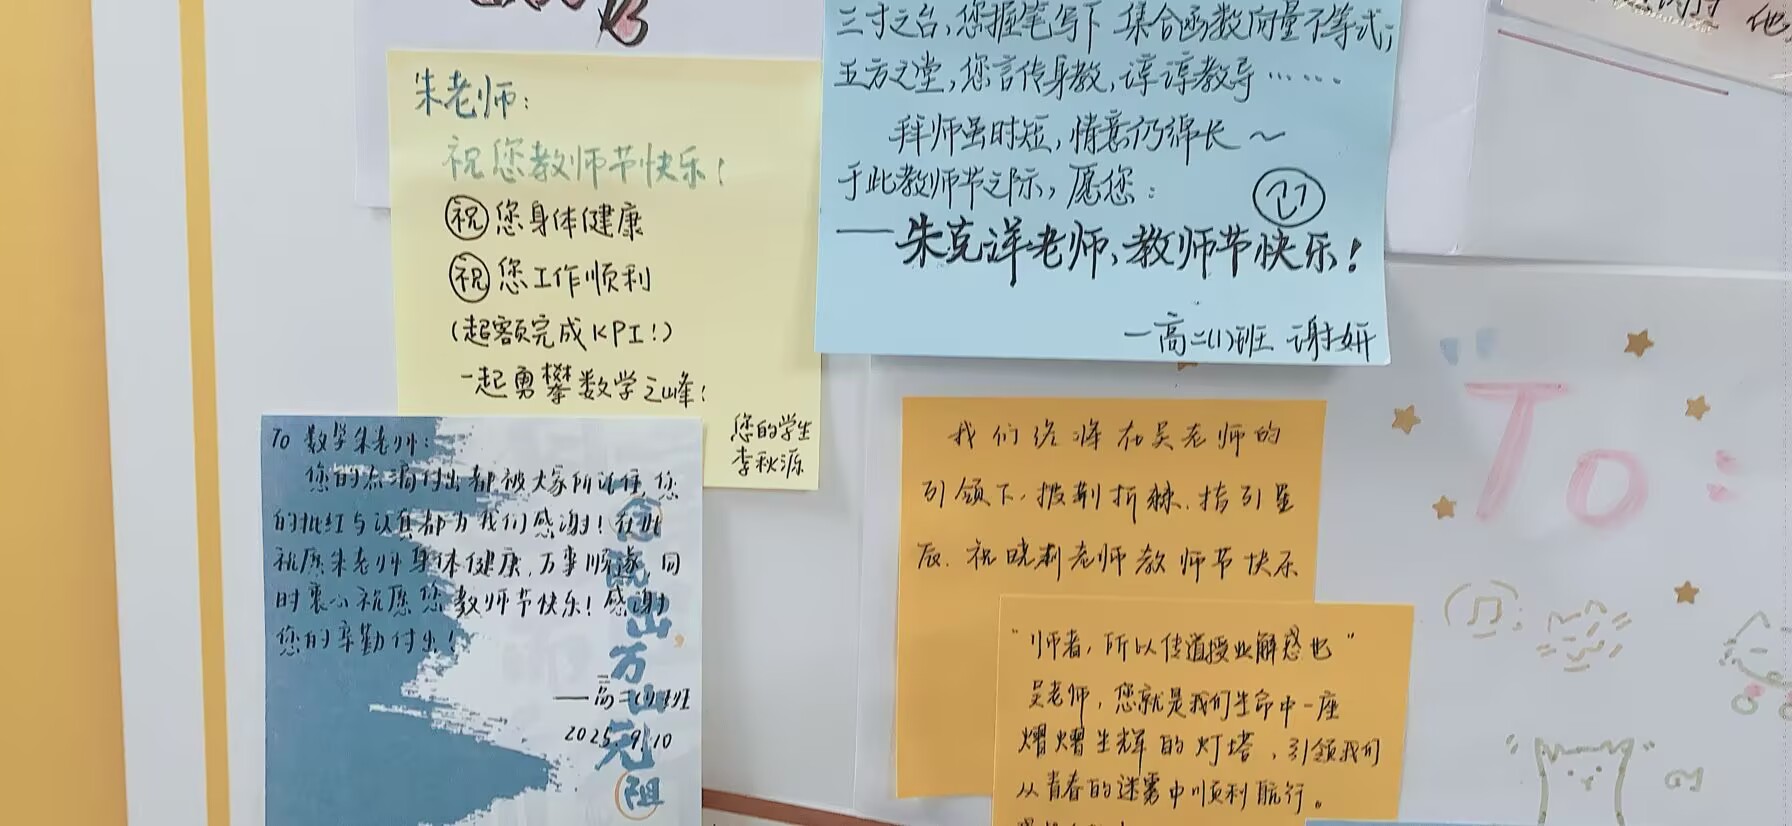 朱老师：
祝您教师节快乐！
祝您身体健康
祝您工作顺利
(超额完成KPI!)
一起勇攀数学之峰！
您的学生
李秋源
三寸之台，您握笔写下 集合函数向量不等式；
五方之堂，您言传身教，谆谆教导……
拜师虽时短，情意仍绵长～
于此教师节之际，愿您：
——朱克洋老师、教师节快乐！
—高二(1)班 谢妍
To 数学朱老师：
您的点滴付出都被大家所记住，您
的批红与认真都为我们感谢！在此
祝愿朱老师身体健康，万事顺遂，同
时衷心祝愿您教师节快乐！感谢
您的辛勤付出！
——高二(1)班
2025.9.10
出万山无阻
我们终将在吴老师的
引领下，披荆折棘，指引星
辰，祝晓莉老师教师节快乐
"师者，所以传道授业解惑也"
吴老师，您就是我们生命中一座
熠熠生辉的灯塔，引领我们
从青春的迷雾中顺利航行。
To: